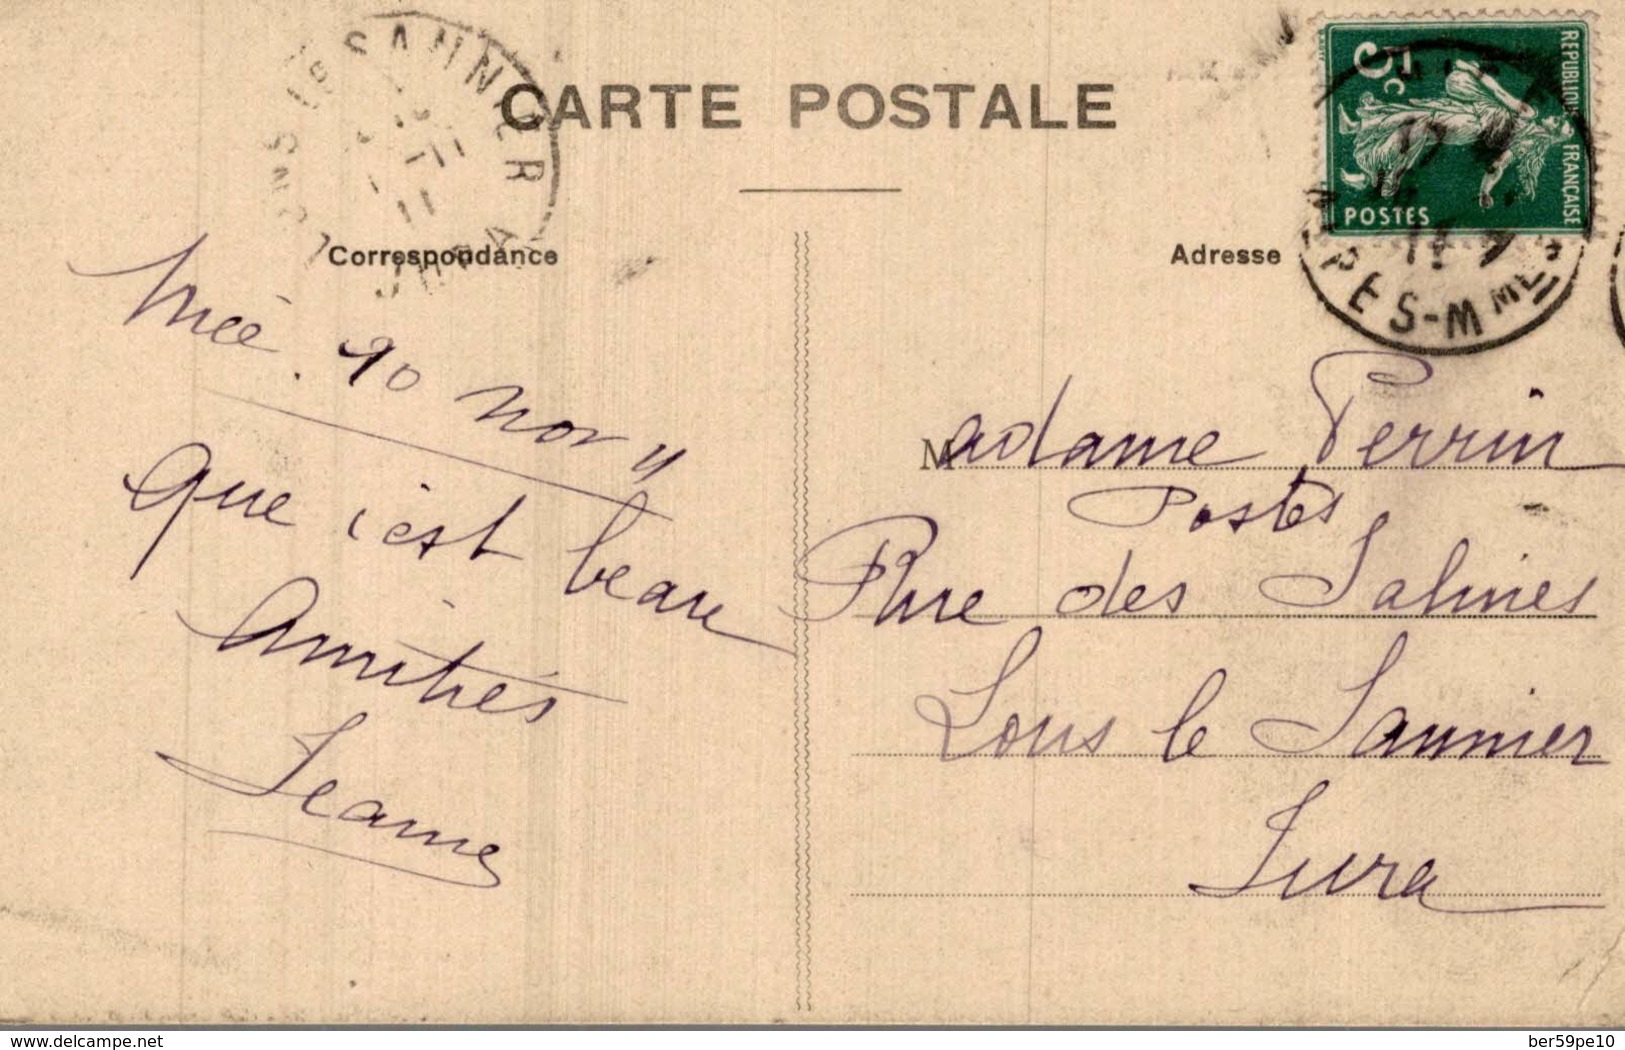 CARTE POSTALE
Correspondance
Adresse
REPUBLIQUE FRANCAISE
5c
POSTES
LONS LE SAUNIER
JURA
ALPES-MMES
11
Nice. 10 nov 11
Que c'est beau
Amitiés
Jeanne
Madame Perrin
Postes
Rue des Salines
Lons le Saunier
Jura
www.delcampe.net
ber59pe10